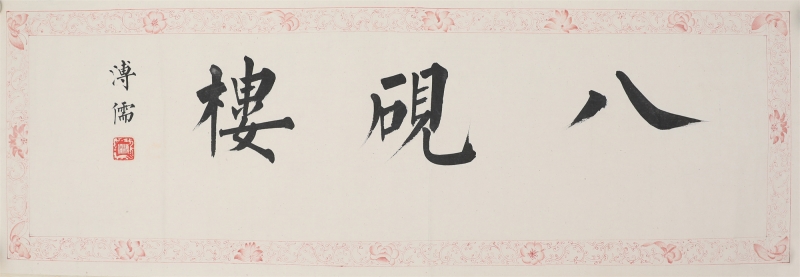 八硯樓
溥儒